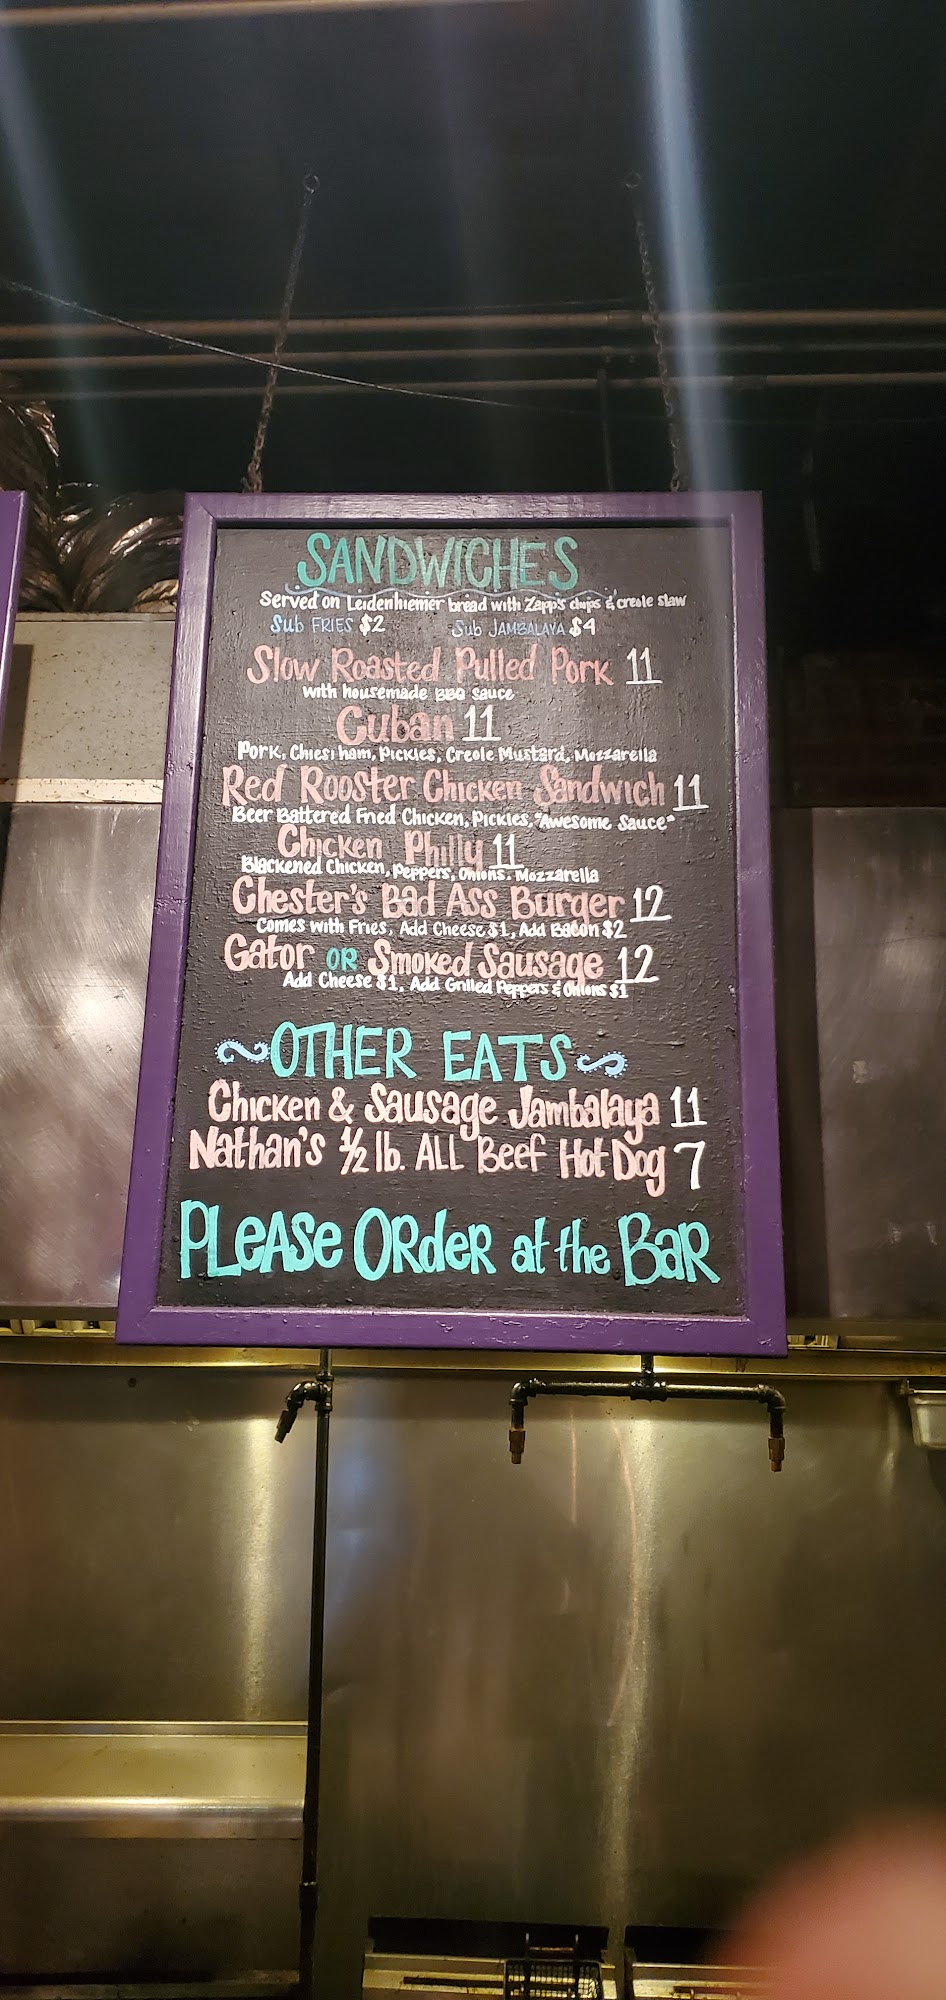 SANDWICHES
Served on Leidenhiemer bread with Zapp's chips & creole slaw
Sub FRIES $2 Sub JAMBALAYA $4
Slow Roasted Pulled Pork 11
with housemade BBQ sauce
Cuban 11
Pork, Chiesi ham, Pickles, Creole Mustard, Mozzarella
Red Rooster Chicken Sandwich 11
Beer Battered Fried Chicken, Pickles, "Awesome Sauce"
Chicken Philly 11
Blackened Chicken, Peppers, Onions, Mozzarella
Chester's Bad Ass Burger 12
Comes with Fries, Add Cheese $1, Add Bacon $2
Gator OR Smoked Sausage 12
Add Cheese $1, Add Grilled Peppers & Onions $1
OTHER EATS
Chicken & Sausage Jambalaya 11
Nathan's 1/2 lb. ALL Beef Hot Dog 7
PLeASe ORdeR at the BaR